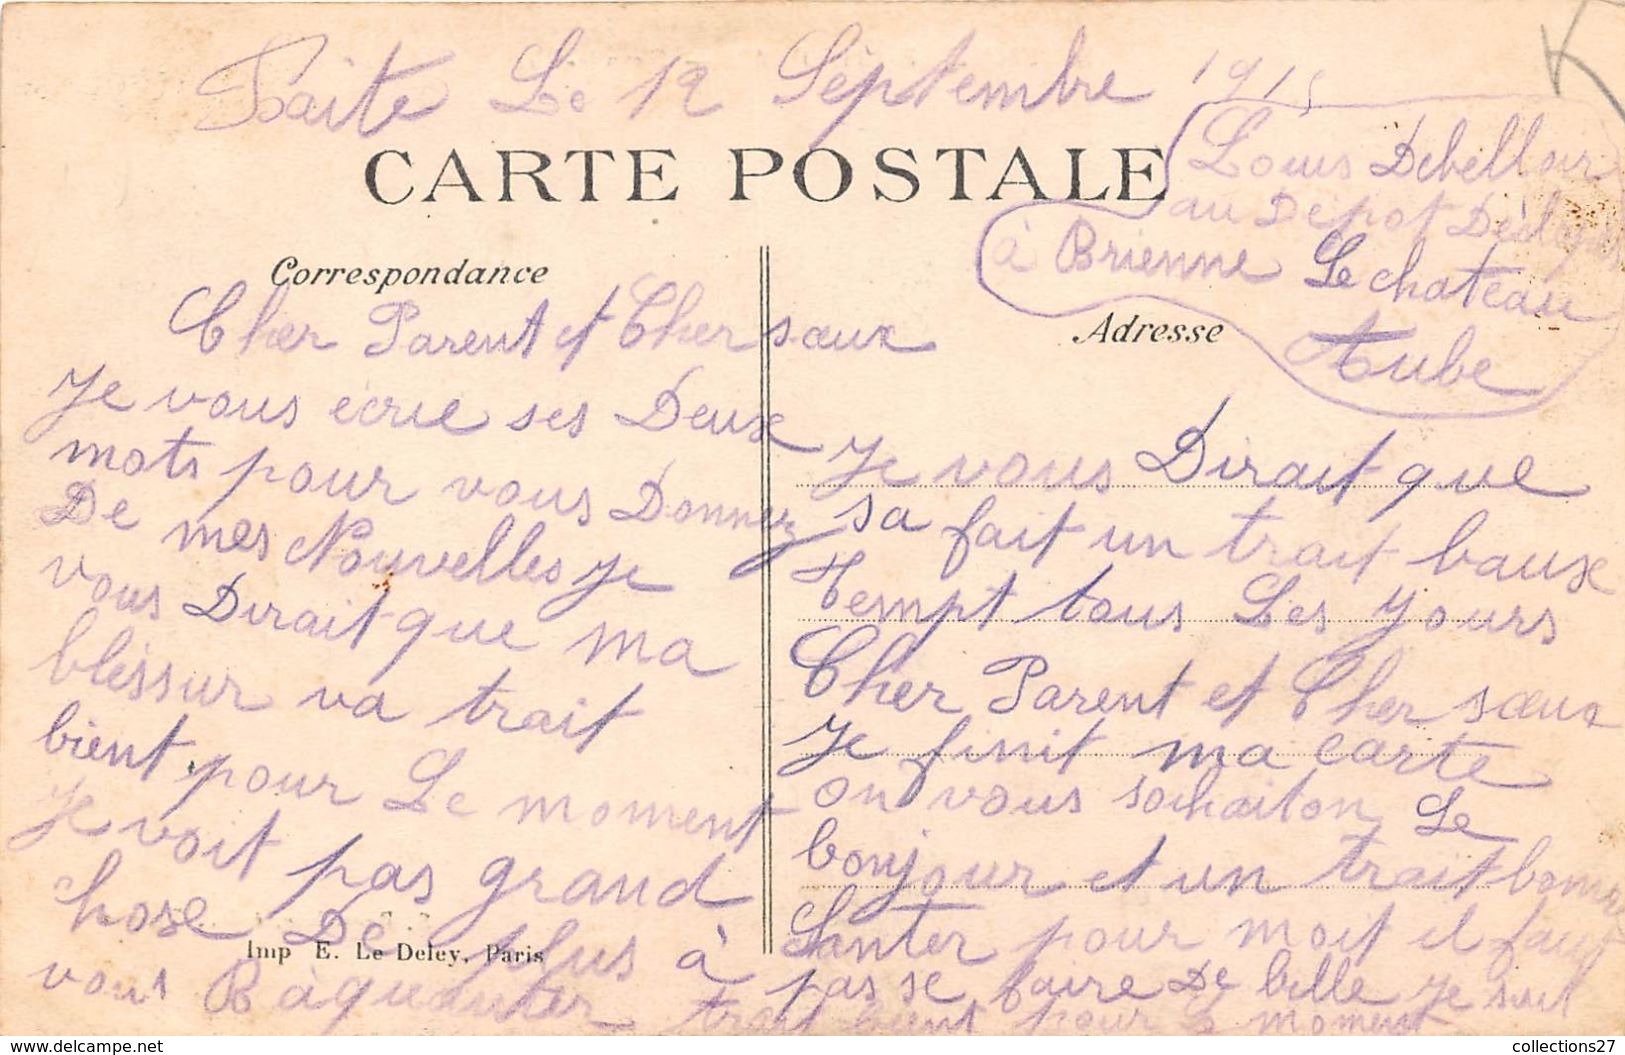 Faite Le 12 Septembre 1915
CARTE POSTALE
Louis Debelloir
au Dépot
à Brienne Le chateau
Aube
Correspondance
Adresse
Cher Parent et Cher saeux
Je vous écrie ses Deux
mots pour vous Donnez
De mes Nouvelles Je
vous Dirait que ma
bléssur va trait
bient pour Le moment
Je voit pas grand
chose De plus à
vous Raquanter
Je vous Dirait que
sa fait un trait baux
tempt tous Les Jours
Cher Parent et Cher saeux
Je finit ma carte
on vous sohaiton Le
bonjour et un trait bonne
Santer pour moit il faut
pas se faire De bille Je suit
trait bient pour Le moment
Imp E. Le Deley, Paris
collections27